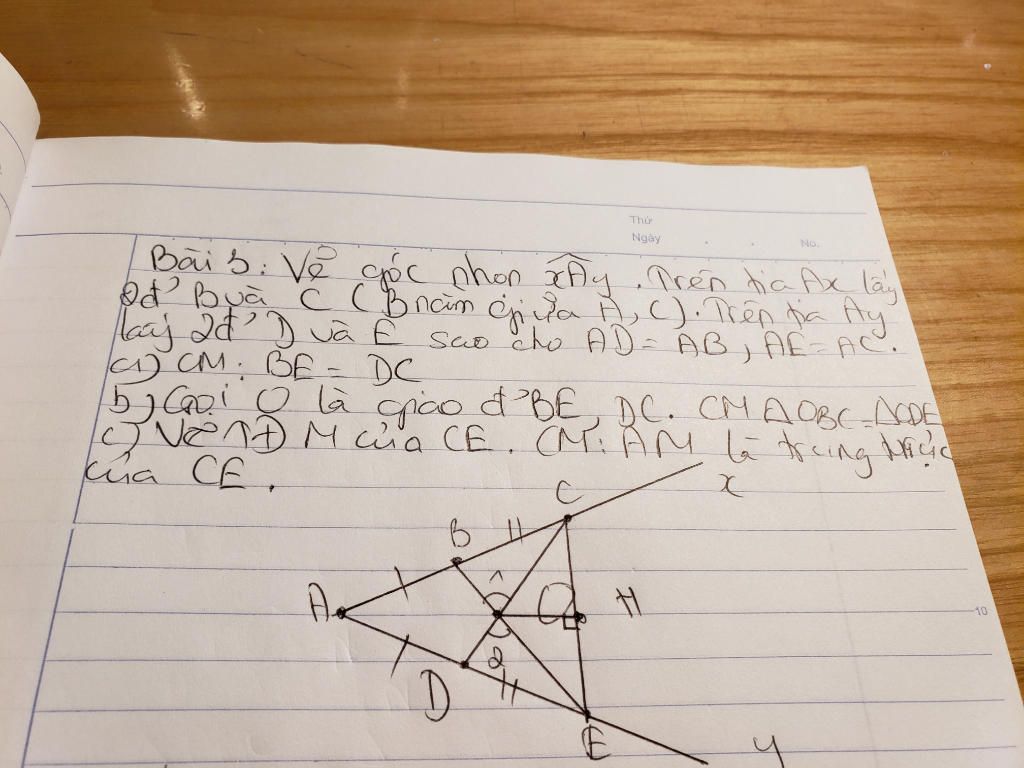 Thứ
Ngày No.
Bài 3: Vẽ góc nhọn xAy. Trên tia Ax lấy
2đ' B và C (B nằm giữa A, C). Trên tia Ay
lấy 2đ' D và E sao cho AD = AB, AE = AC.
a) CM: BE = DC
b) Gọi O là giao đ' BE, DC. CM ΔOBC = ΔODE
c) Vẽ TĐ M của CE. CM: AM là trung trực
của CE.
x
C
B
A
1
O
H
10
2
D
E
y